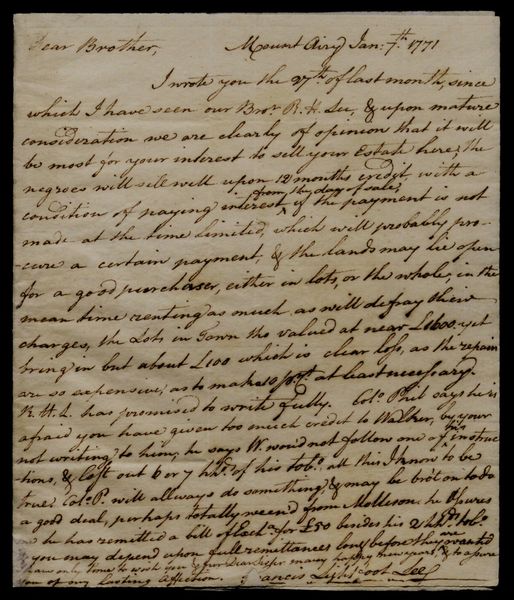 Dear Brother, Mount Airy Jan: 7.th 1771
I wrote you the 27th of last month, since
which I have seen our Bror R. H. Lee, & upon mature
consideration we are clearly of opinion that it will
be most for your interest to sell your Estate here; the
negroes will sell well upon 12 months credit with a
from the day of sale,
condition of paying interest ^ if the payment is not
made at the time limited, which will probably pro-
cure a certain payment, & the lands may lie open
for a good purchaser, either in lots, or the whole, in the
mean time renting as much as will defray their
charges, the Lots in Town tho valued at near £1600. yet
bring in but about £100 which is clear loss, as the repairs
are so expensive, as to make 10 pr Ct at least necessary.
R. H. L. has promised to write fully. Colo Phil says he is
afraid you have given too much credit to Walker, by your
not writing to him, he says W. wou'd not follow one of his instruc
tions, & left out 6 or 7 hhds of his tobo all this I know to be
true; Colo P. will allways do something & may be bro't on to do
a good deal, perhaps totally wean'd from Mollison: he assures
he has remitted a bill of Exca for £50 besides his 21 hhds tobo
you may depend upon full remittances long before they are wanted
I have only time to wish you & our Dear Sister many happy new years, & to assure
you of my lasting Affection. Francis Lightfoot Lee